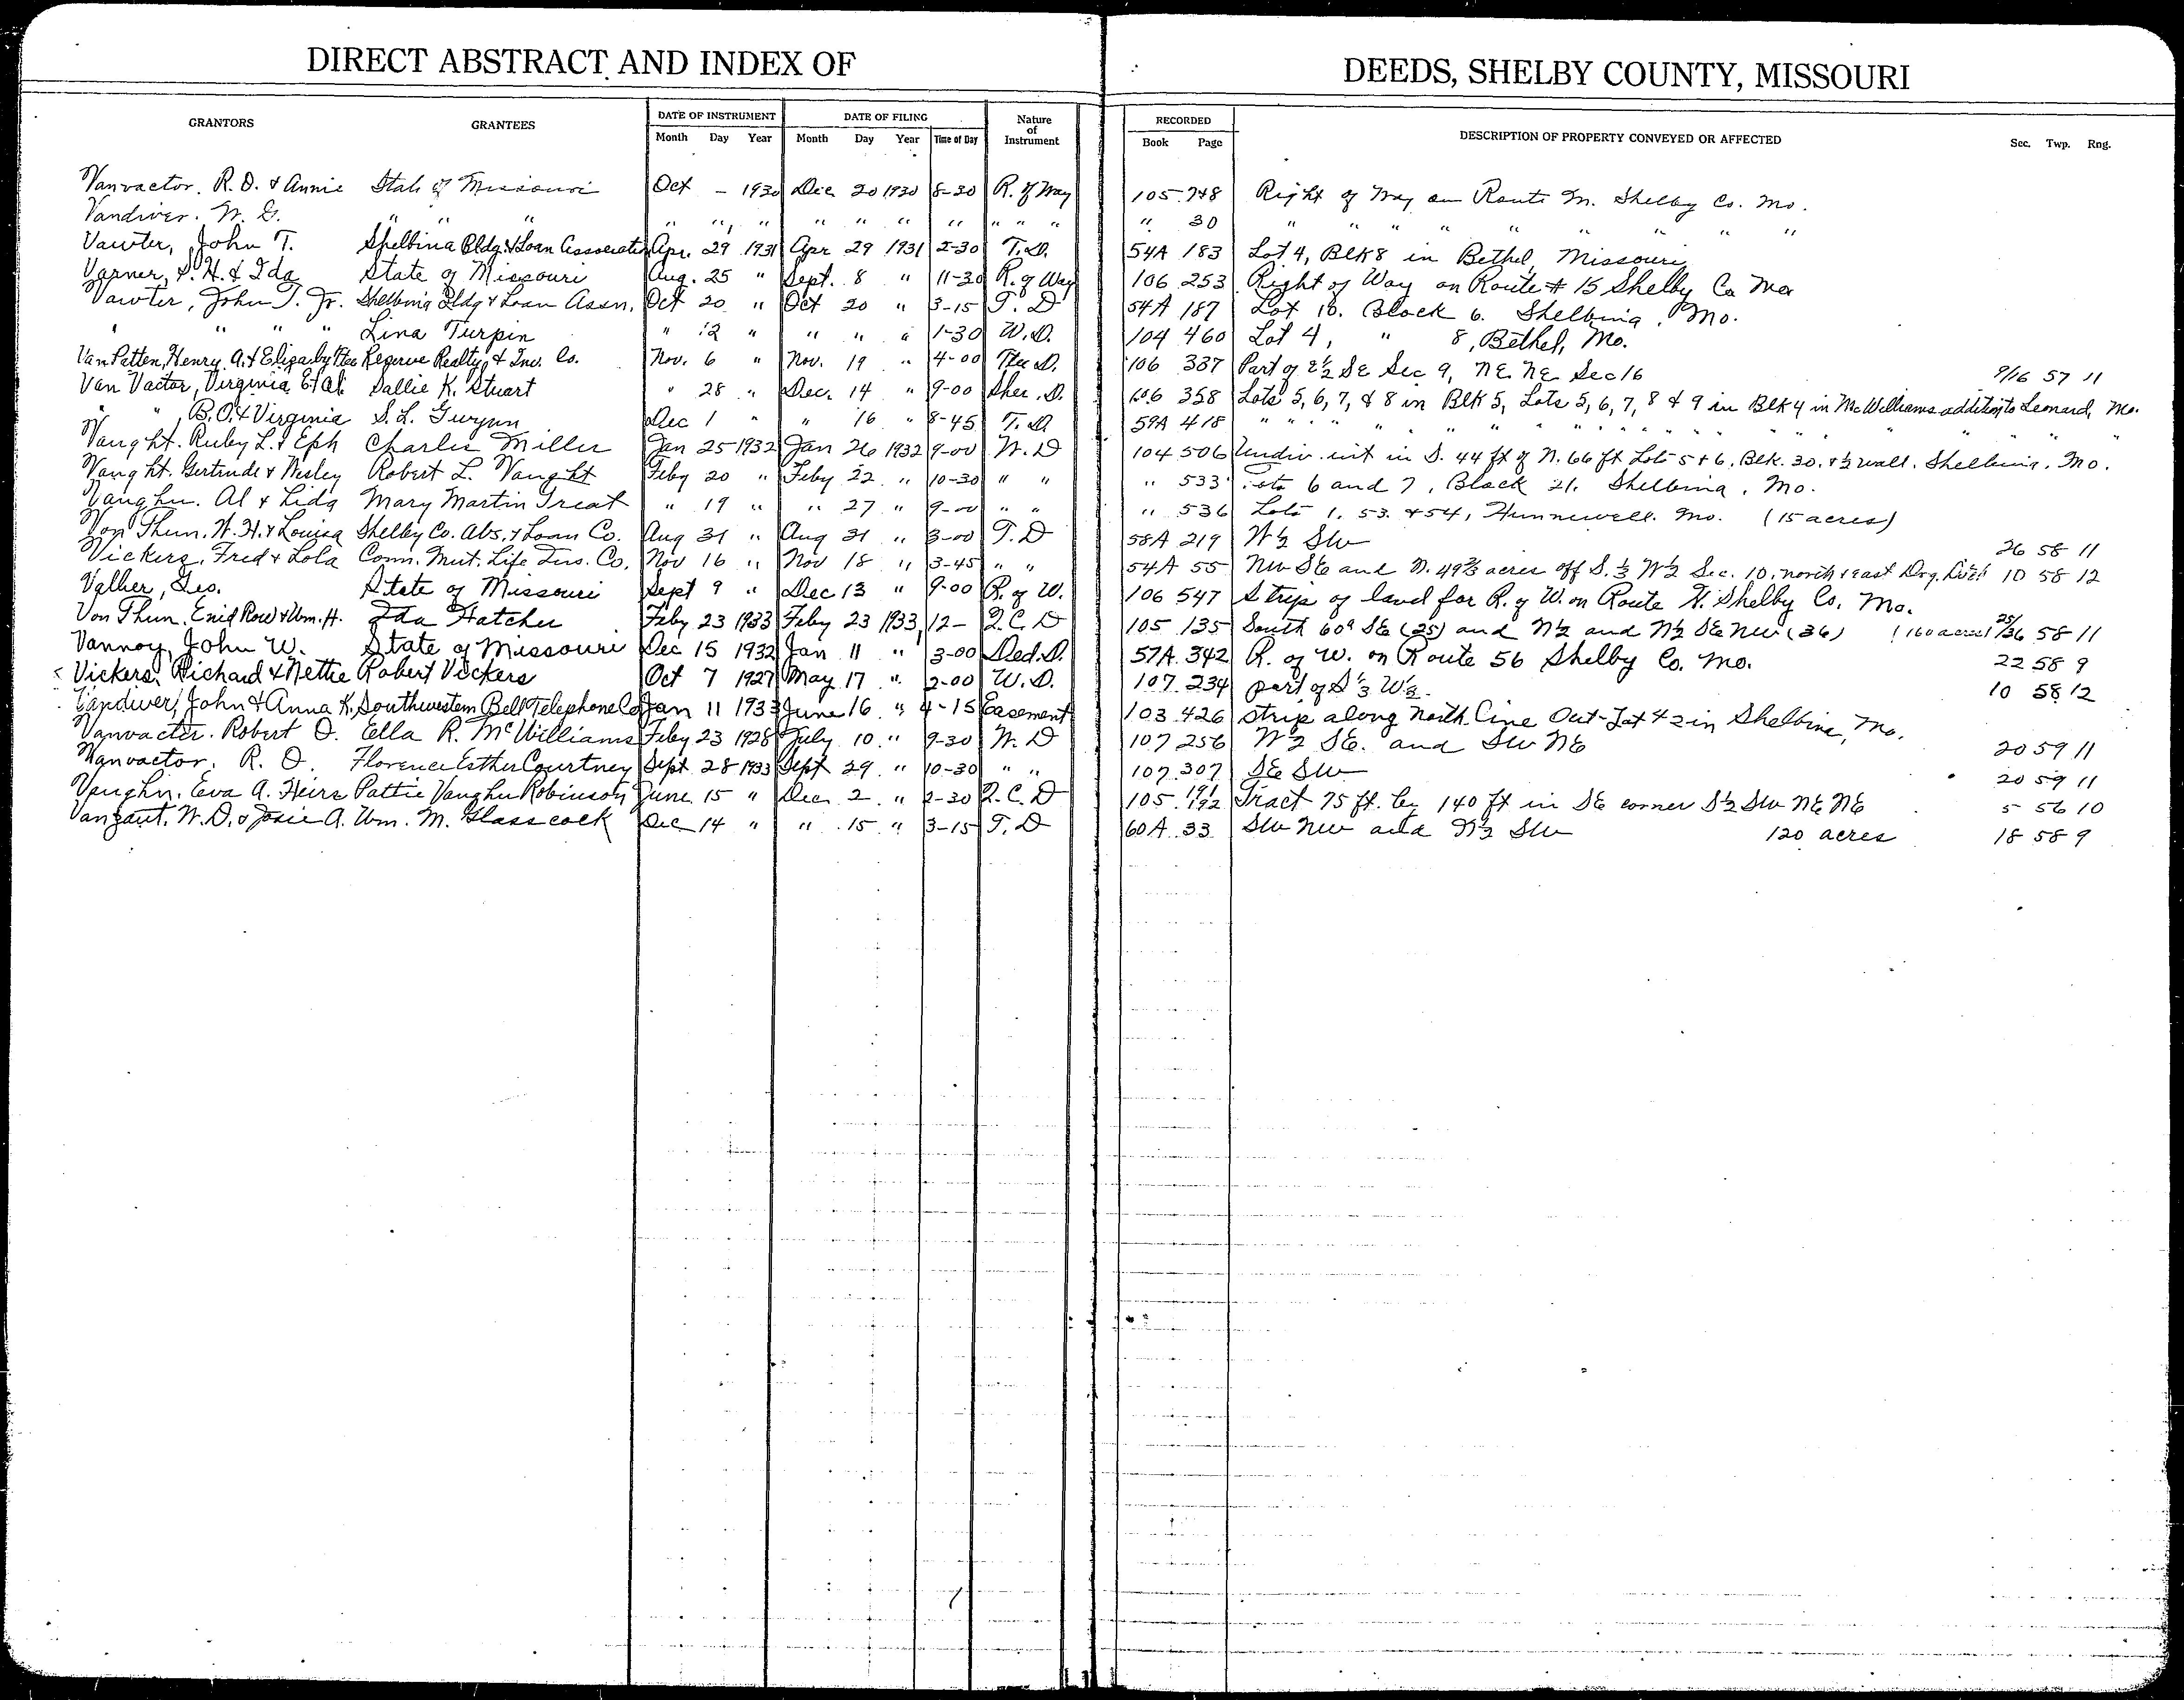 DIRECT ABSTRACT AND INDEX OF DEEDS, SHELBY COUNTY, MISSOURI
GRANTORS GRANTEES DATE OF INSTRUMENT DATE OF FILING Nature of Instrument RECORDED DESCRIPTION OF PROPERTY CONVEYED OR AFFECTED Sec. Twp. Rng.
Month Day Year Month Day Year Time of Day Book Page
Vanvactor. R. O. & Annie State of Missouri Oct - 1930 Dec 20 1930 8-30 R. of Way 105 748 Right of Way on Route M. Shelby Co. Mo.
Vandiver. W. G. " " " " " " " " " " " " " " 30 " " " " " " " " "
Vawter, John T. Shelbina Bldg. & Loan Association Apr. 29 1931 Apr 29 1931 2-30 T.D. 54A 183 Lot 4, Blk 8 in Bethel, Missouri
Varner, S. H. & Ida State of Missouri Aug. 25 " Sept. 8 " 11-30 R. of Way 106 253 Right of Way on Route # 15 Shelby Co Mo
Vawter, John T. Jr. Shelbina Bldg & Loan Assn. Oct 20 " Oct 20 " 3-15 T. D 54A 187 Lot 10. Block 6. Shelbina, Mo.
" " " " Lina Turpin " 12 " " " " 1-30 W.D. 104 460 Lot 4, " 8, Bethel, Mo.
Van Patten, Henry A. & Reserve Realty & Inv. Co. Nov. 6 " Nov. 19 " 4-00 D. 106 337 Part of E½ SE Sec 9, NE NE Sec 16 9/16 57 11
Van Vactor, Virginia Et Al. Sallie K. Stuart " 28 " Dec. 14 " 9-00 Sher. D. 106 358 Lots 5, 6, 7, & 8 in Blk 5, Lots 5, 6, 7, 8 & 9 in Blk 4 in McWilliams addition to Leonard, Mo.
" ", B.O. & Virginia S. L. Gwynn Dec 1 " " 16 " 8-45 T. D 59A 418 " " " " " " " " " " " "
Vaught. Ruby L. & Eph Charlie Miller Jan 25 1932 Jan 26 1932 9-00 W. D 104 506 Undiv. int in S. 44 ft of N. 66 ft Lots 5 & 6, Blk. 30. & ½ wall. Shelbina. Mo.
Vaught. Gertrude & Wesley Robert L. Vaught Feby 20 " Feby 22 " 10-30 " " " 533 Lots 6 and 7, Block 21. Shelbina, Mo.
Vaughn. Al & Lida Mary Martin Treat " 19 " " 27 " 9-00 " " " 536 Lots 1. 53. & 54, Hunnewell. Mo. (15 acres)
Von Thun. W. H. & Louisa Shelby Co. Abs. & Loan Co. Aug 31 " Aug 31 " 3-00 T. D 58A 219 W½ SW 26 58 11
Vickers, Fred & Lola Conn. Mut. Life Ins. Co. Nov 16 " Nov 18 " 3-45 " " 54A 55 NW SE and N. 49⅔ acres off S. ⅓ W½ Sec. 10. north & east Drg. Ditch 10 58 12
Geo. State of Missouri Sept 9 " Dec 13 " 9-00 R. of W. 106 547 Strip of land for R. of W. on Route Shelby Co. Mo.
Von Thun. Enid Row & Wm. H. Ida Hatcher Feby 23 1933 Feby 23 1933 12- Q. C. D 105 135 South 60a SE (25) and N½ and N½ SE NW (36) (160 acres) 25/36 58 11
Vannoy, John W. State of Missouri Dec 15 1932 Jan 11 " 3-00 Ded. D. 57A 342 R. of W. on Route 56 Shelby Co. Mo. 22 58 9
Vickers, Richard & Nettie Robert Vickers Oct 7 1927 May 17 " 2-00 W. D. 107 234 part of S⅓ W½. 10 58 12
Vandiver, John & Anna K. Southwestern Bell Telephone Co Jan 11 1933 June 16 " 4-15 Easement 103 426 strip along North Line Out-Lot 42 in Shelbina, Mo.
Vanvacter. Robert O. Ella R. McWilliams Feby 23 1928 July 10 " 9-30 W. D 107 256 W½ SE. and SW NE 20 59 11
Vanvactor. R. O. Florence Esther Courtney Sept 28 1933 Sept 29 " 10-30 " " 107 307 SE SW 20 59 11
Vaughn. Eva A. Heirs Pattie Vaughn Robinson June 15 " Dec 2 " 2-30 Q. C. D 105 191 192 Tract 75 ft. by 140 ft in SE corner S½ SW NE NE 5 56 10
Vanzant. W. D. & Josie A. Wm. M. Glasscock Dec 14 " " 15 " 3-15 T. D 60A 33 SW NW and N½ SW 120 acres 18 58 9